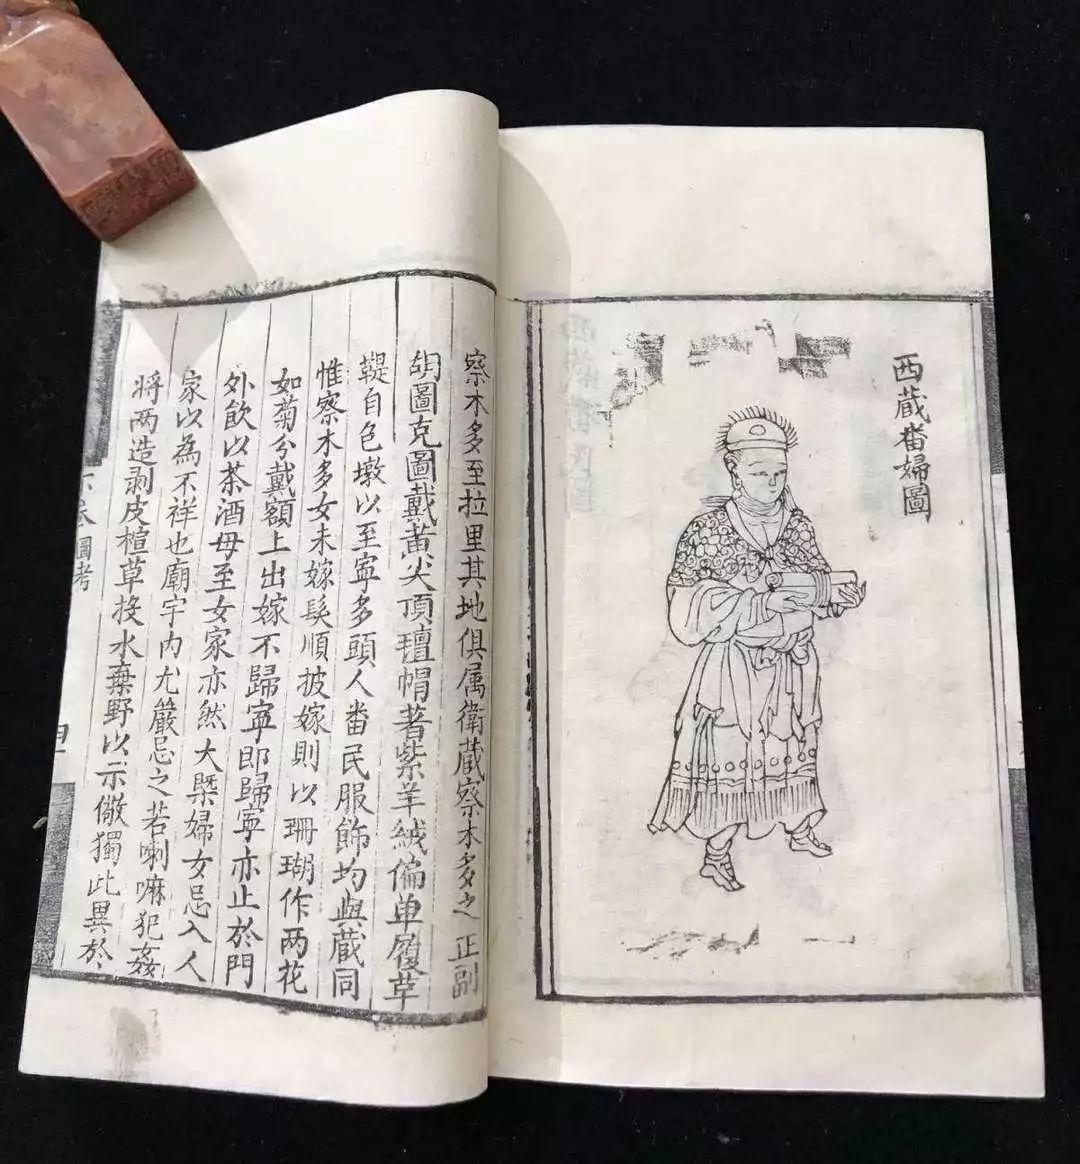 西蔵畨婦圖
察木多至拉里其地俱属衛蔵察木多之正副
胡圖克圖戴黄尖頂璮帽著紫羊絨偏单履草
鞮自色墩以至寧多頭人畨民服飾均與蔵同
惟察木多女未嫁髮順披嫁則以珊瑚作两花
如菊分戴額上出嫁不歸寧即歸寧亦止於門
外飲以茶酒母至女家亦然大槩婦女忌入人
家以為不祥也廟宇内尤嚴忌之若喇嘛犯姦
將两造剥皮楦草投水棄野以示儆獨此異於
圖考